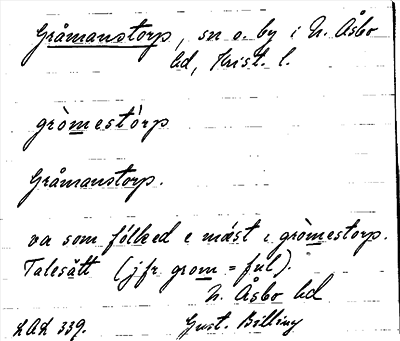 Gråmanstorp, sn o. by i N. Åsbo
hd, Krist. l.
gròmestòrp
Gråmanstorp.
va som fólked e mást i gròmestorp.
Talesätt (jfr grom = ful).
N. Åsbo hd
LAL 339. Gust. Billing